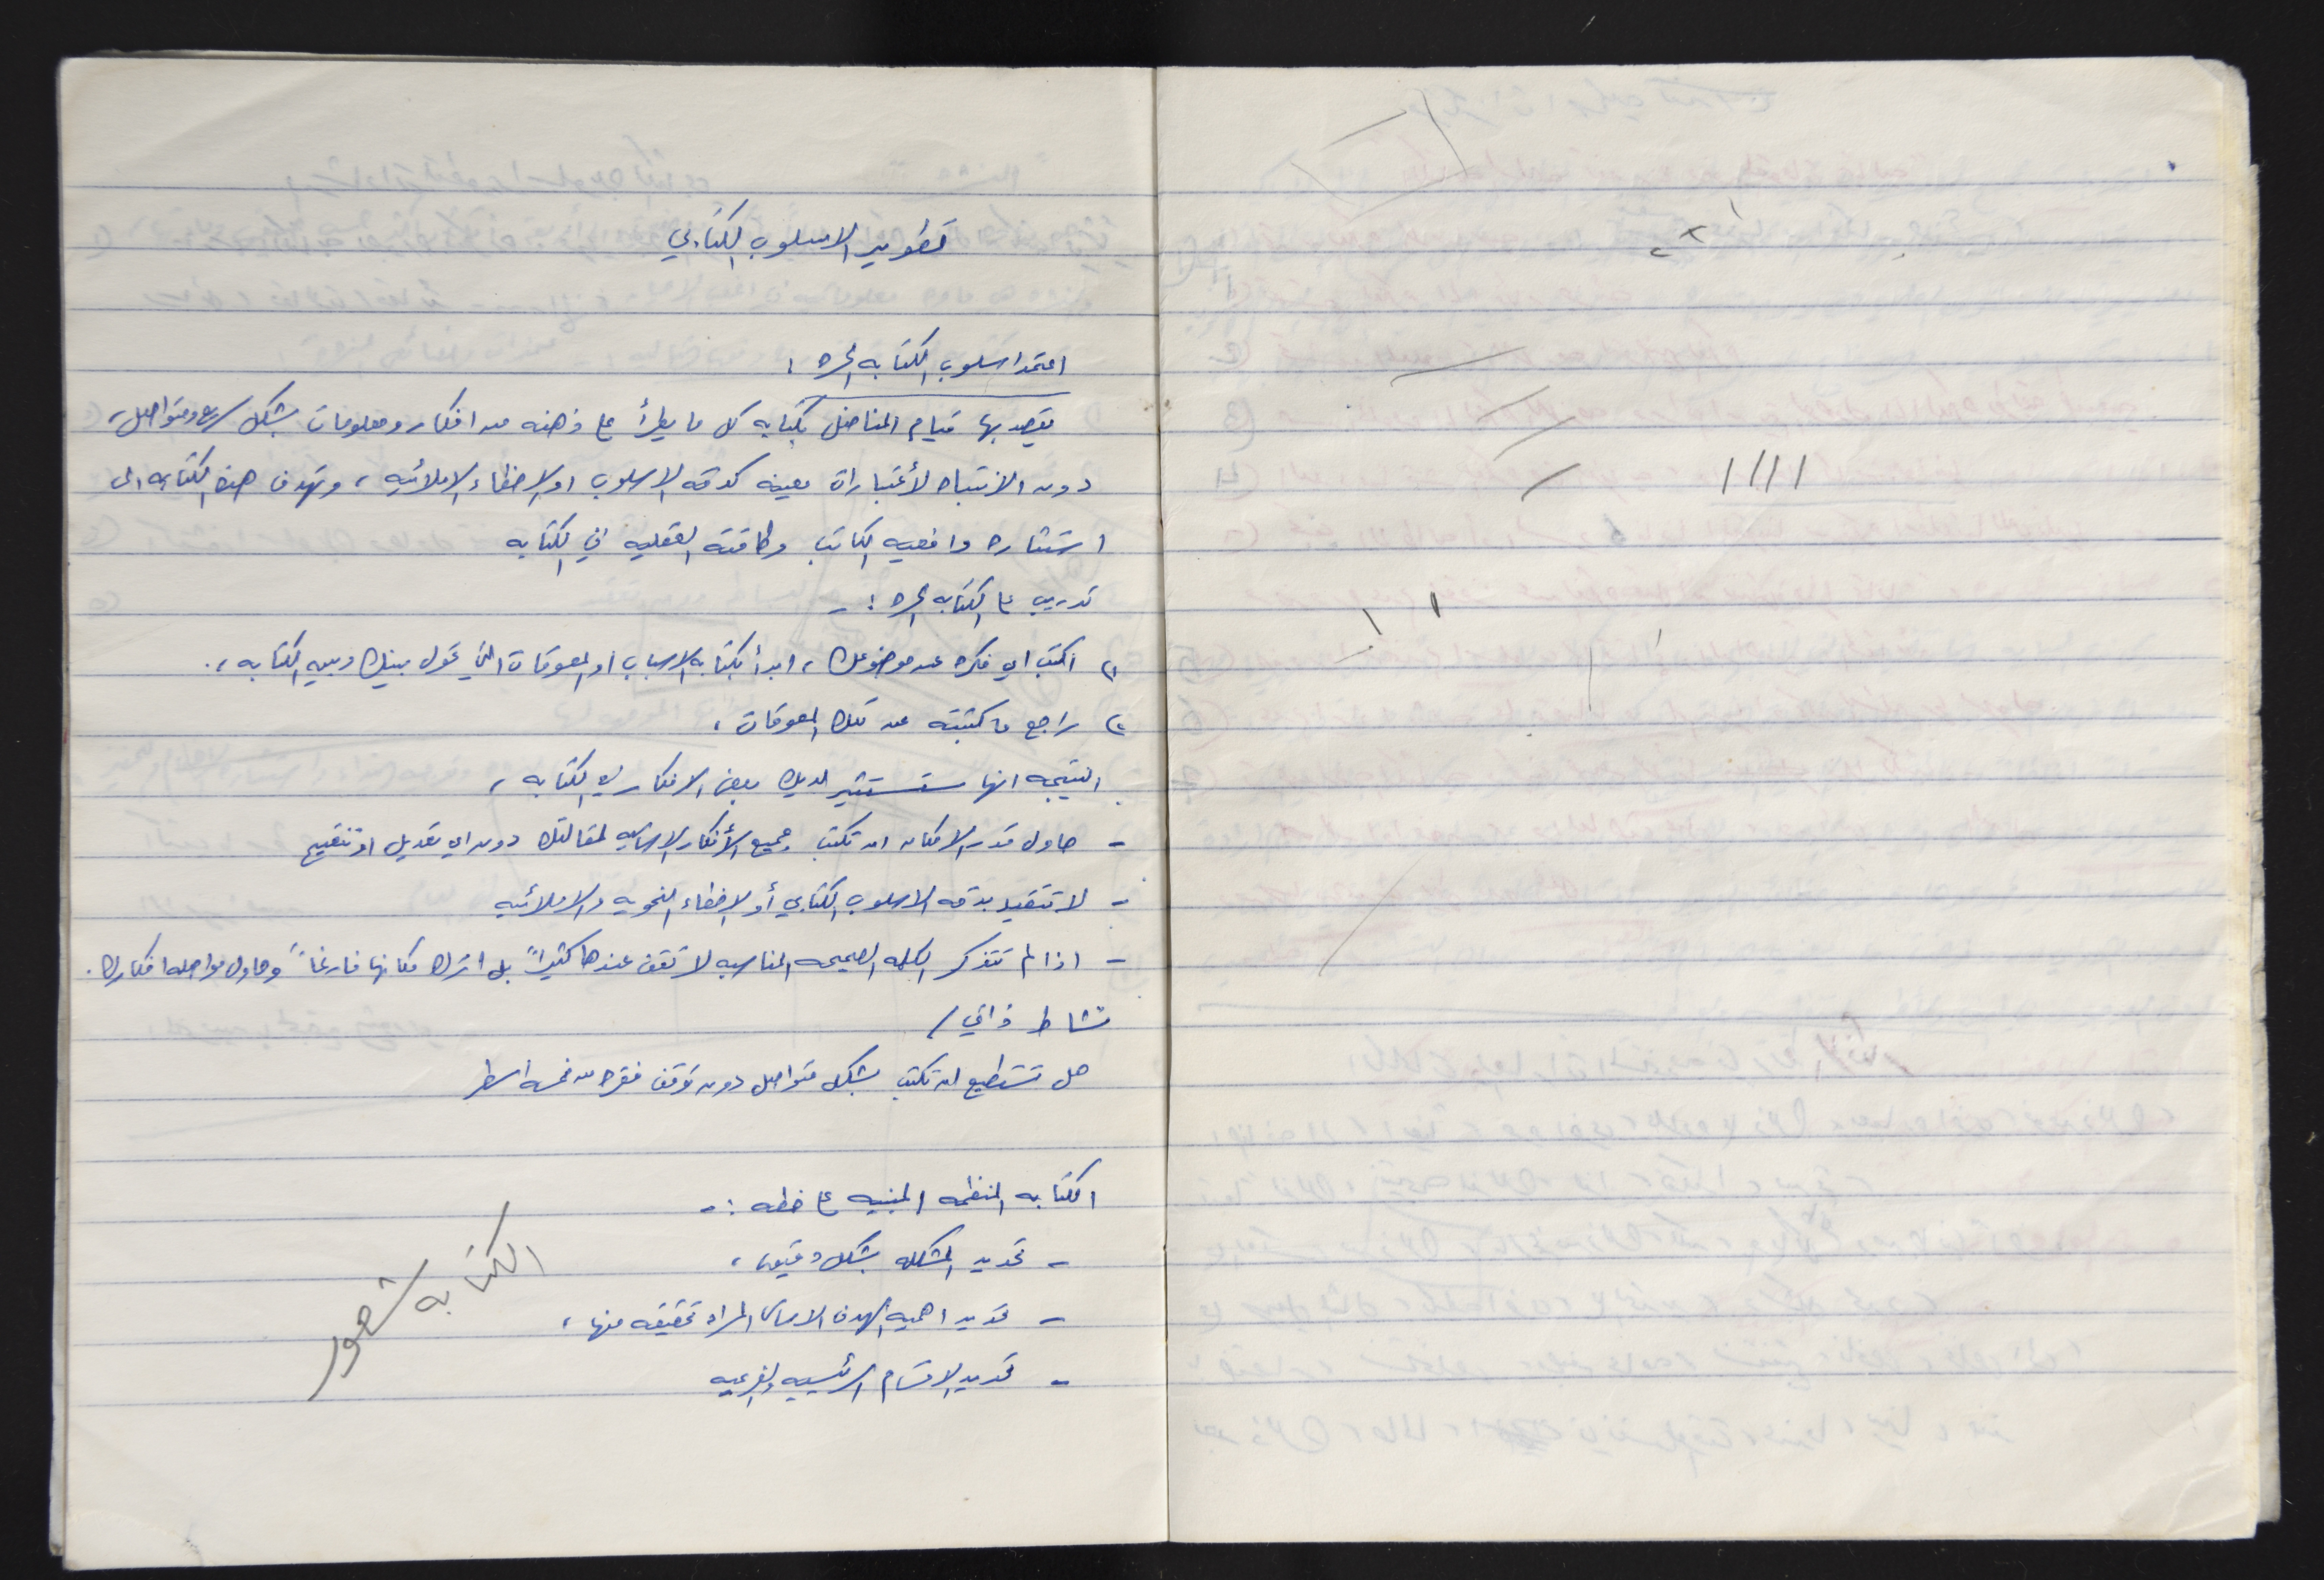 تطوير الاسلوب الكتابي
اعتمد اسلوب الكتابه الحره :
يقصد بها قيام المناضل بكتابه كل ما يطرأ على ذهنه من افكار ومعلومات بشكل سريع ومتواصل،
دون الانتباه لأعتبارات معينه كدقه الاسلوب او الاخطاء الاملائيه ، وتهدف هذه الكتابه الى
استثاره دافعيه الكاتب وطاقته العقليه في الكتابه
تدريب على الكتابه الحره :-
١) اكتب اي فكره عن موضوعك ، ابدأ بكتابه الاسباب او المعوقات التي تحول بينك وبين الكتابه ،.
٢) راجع ما كتبته عن تلك المعوقات ،
النتيجه انها ستستثير لديك بعض الافكار في الكتابه ،
- حاول قدر الامكان ان تكتب جميع الأفكار الاساسيه لمقالتك دون اي تعديل او تنقيح
- لا تتقيد بدقه الاسلوب الكتابي أو الاخطاء النحويه والاملائيه
- اذا لم تتذكر الكلمه الصحيحه المناسبه لا تقف عندها كثيراً بل اترك مكانها فارغاً وحاول مواصله افكارك .
نشاط ذاتي /
هل تستطيع ان تكتب بشكل متواصل دون توقف فقره من خمسه اسطر
الكتابه المنظمه المبنيه على خطه :-
- تحديد المشكله بشكل دقيق ،
- تحديد اهميه الهدف الاساسي المراد تحقيقه منها ،
- تحديد الاقسام الرئيسيه والفرعيه
الكتابه شعور